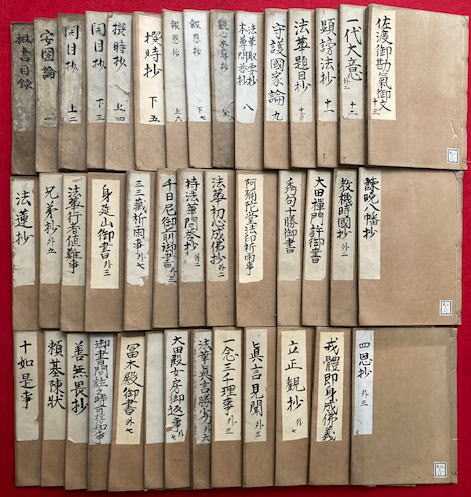 祖書目録
安國論 一
開目抄 上二
開目抄 下三
撰時抄 上四
撰時抄 下五
報恩抄 上六
報恩抄 下七
觀心本尊抄
法華取要抄
本尊問答抄 八
守護國家論 九
法華題目抄 十
顕謗法抄 十一
一代大意 十二
佐渡御勘氣御文 十三
法蓮抄
兄弟抄 外五
法華行者値難事
身延山御書 外三
三三蔵祈雨事 外七
千日尼御前御書 外三
持法華問答抄 外二
法華初心成佛抄 外二
阿弥陀堂法印祈雨事
秀句十勝御書
太田禅門許御書
教機時國抄 外二
諫曉八幡抄
十如是事
頼基陳状
善無畏抄
御書問註之時可存知事
冨木殿御書 外七
太田殿女房御返事 外七
法華真言勝劣 外六
一念三千理事 外三
眞言見聞
立正觀抄 外七
戒體即身成佛義
四恩抄 外三